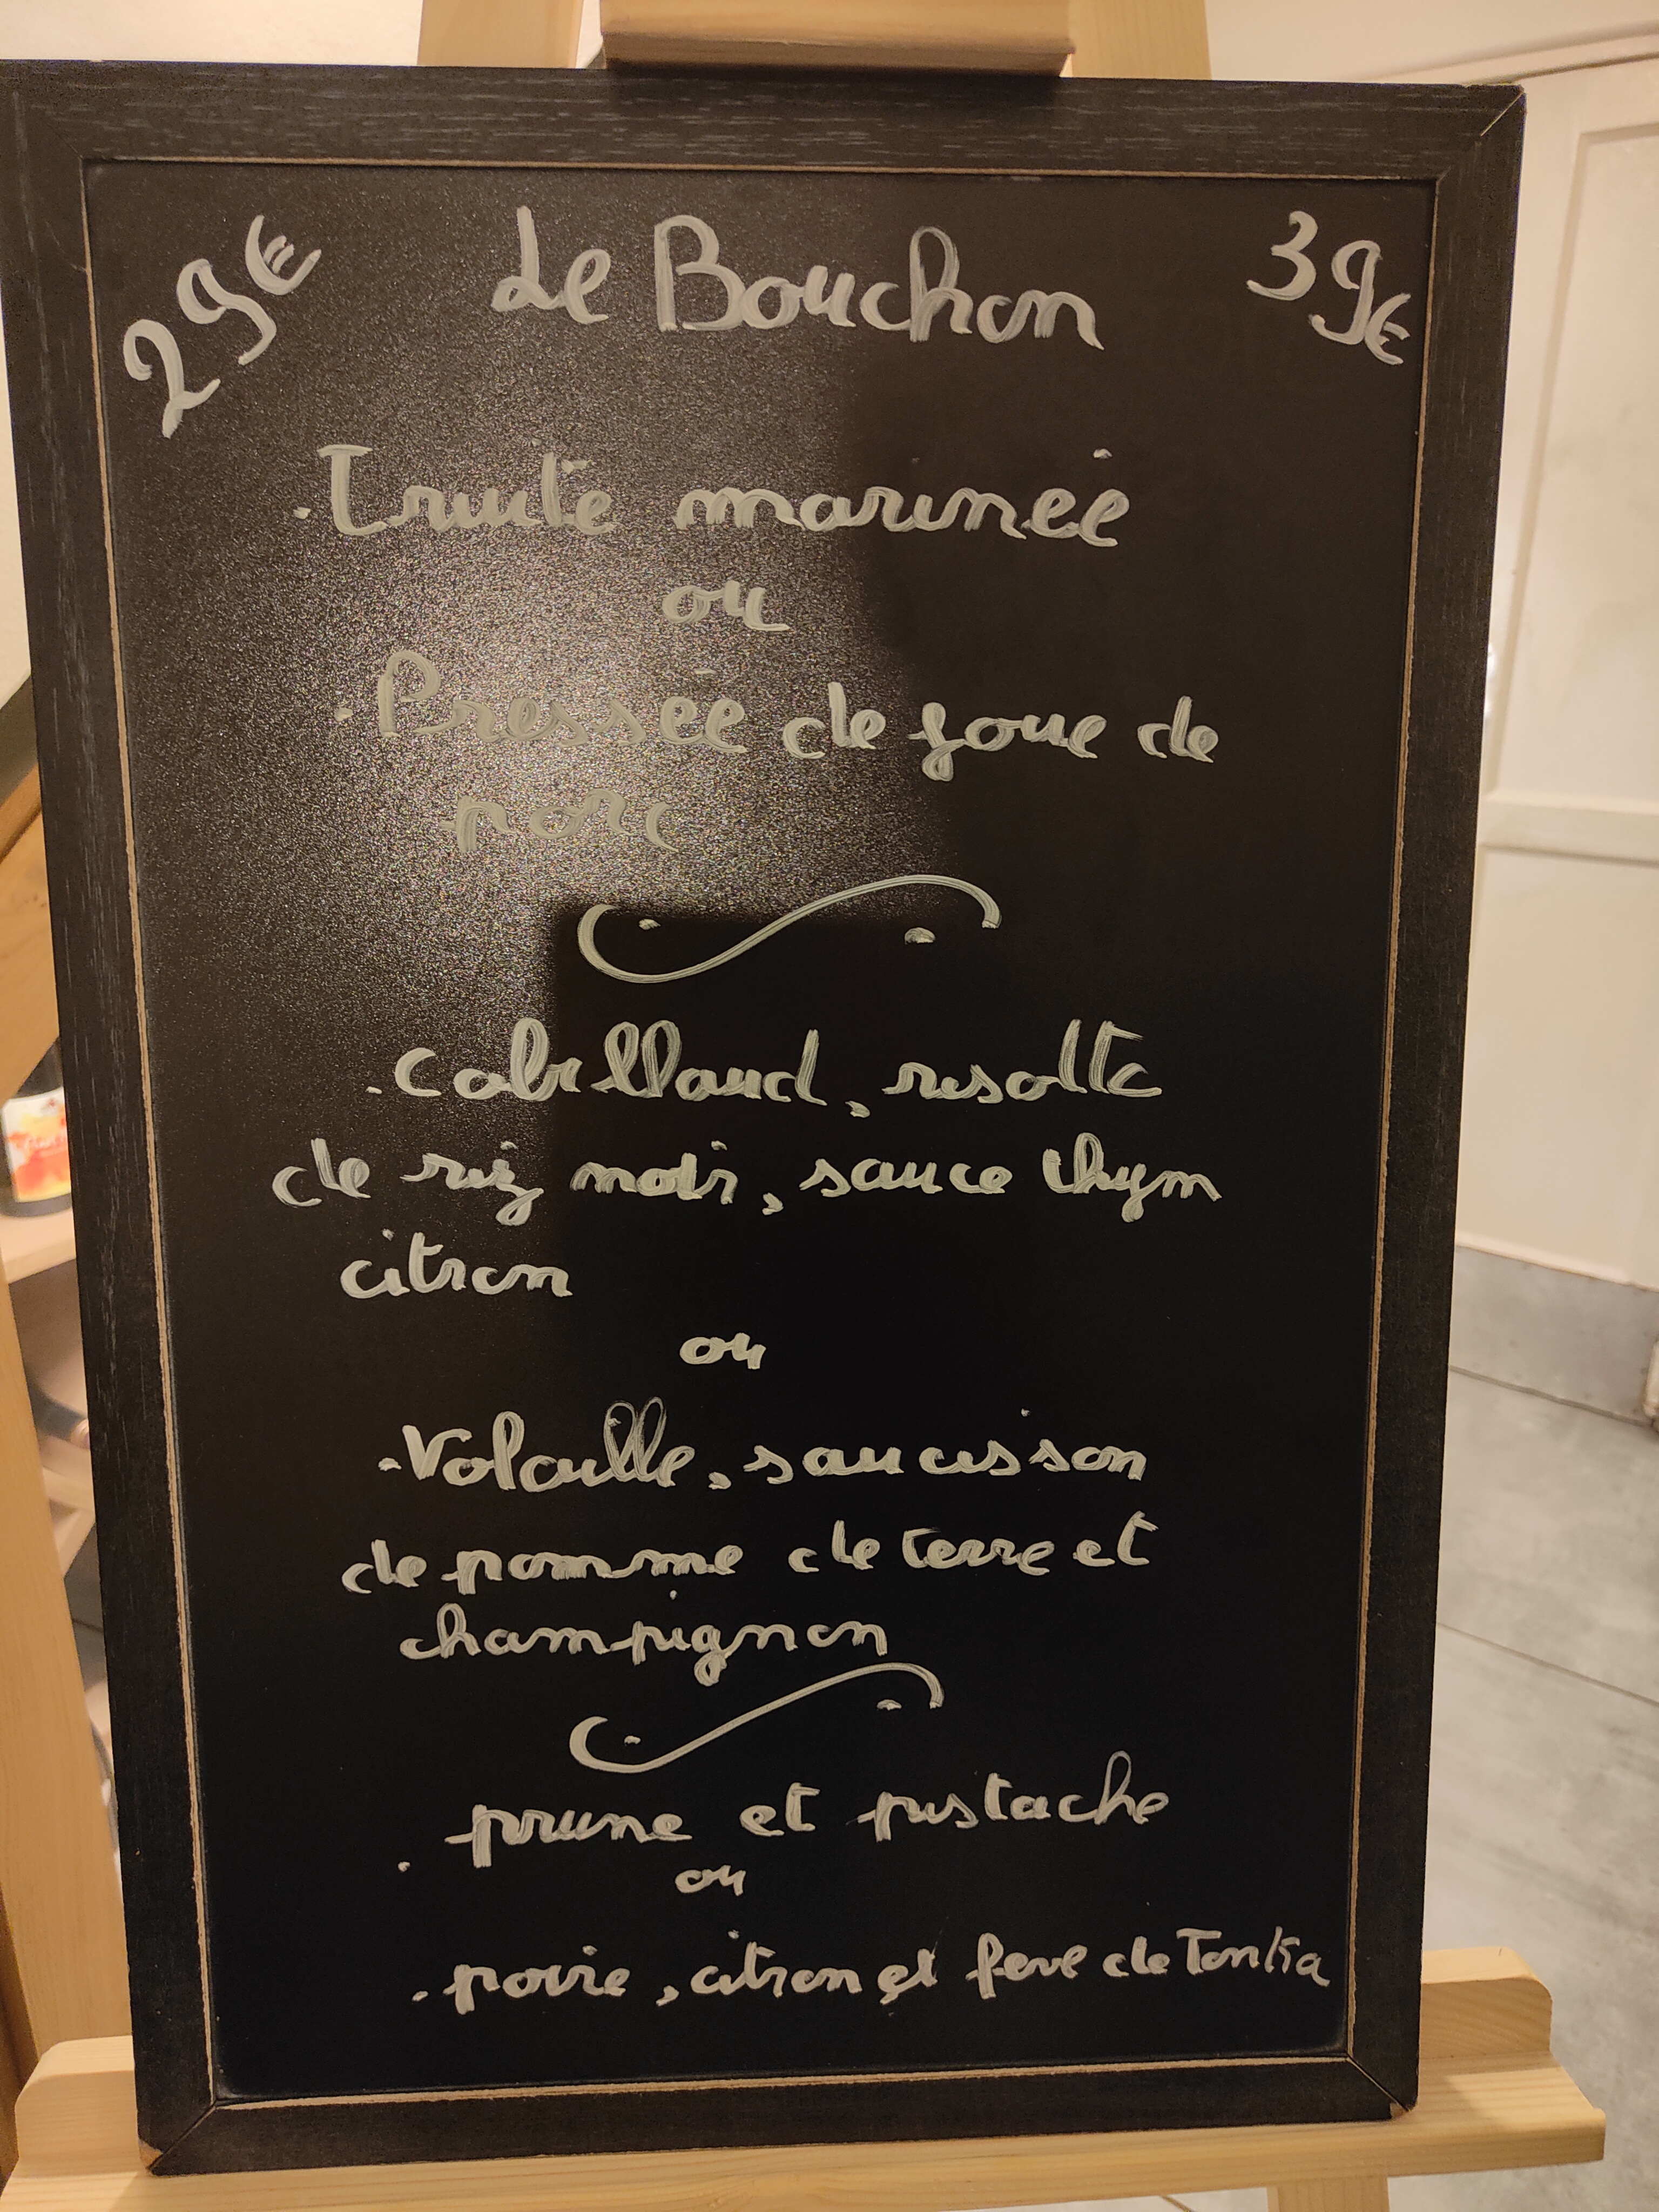 29€ Le Bouchon 39€
. Truite marinée
ou
. Pressée de joue de
porc
. Cabillaud, risotto
de riz noir, sauce thym
citron
ou
. Volaille, saucisson
de pomme de terre et
champignon
. prune et pistache
ou
. poire, citron et feve de Tonka